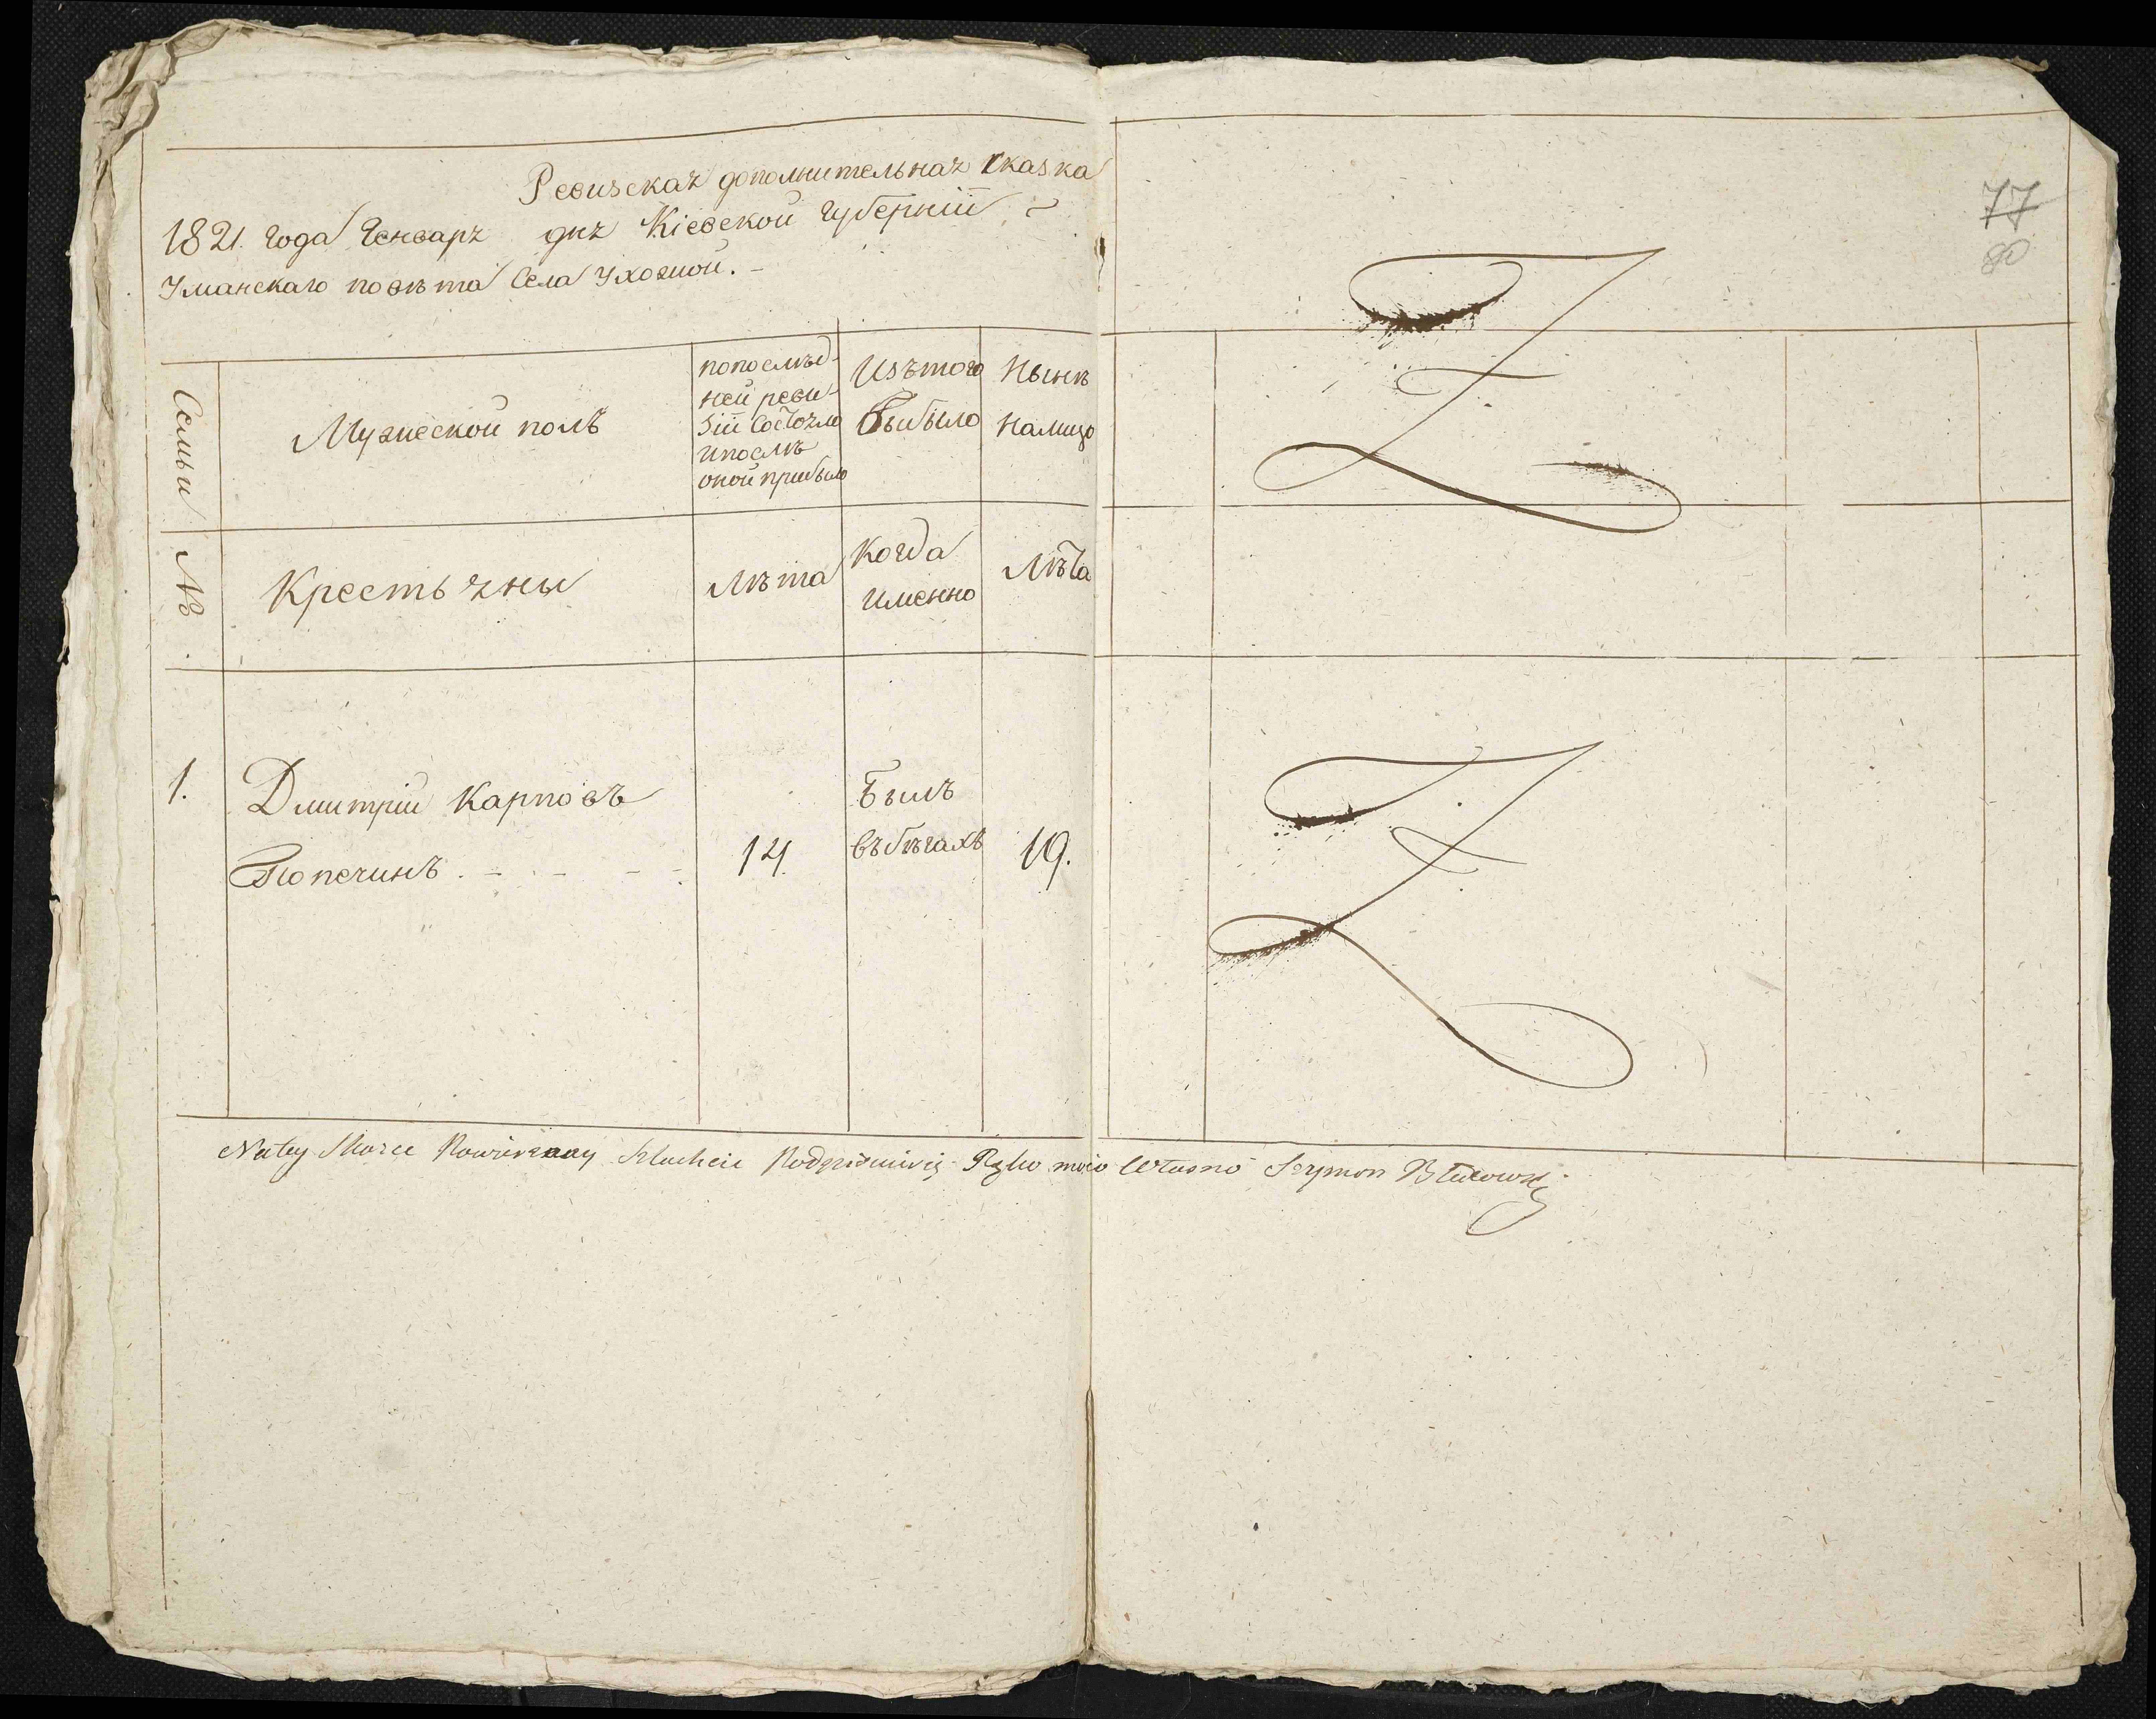 Ревизская дополнительная сказка
1821. года Генваря дня Кіевской губерніи
Уманскаго повѣта Села Ухожой.
77
80
Семьи
Мужеской полъ
попослѣд-
ней реви-
зіи состояло
и послѣ
оной прибыло
Изътого
выбыло
Нынѣ
налицо
№
Крестьяне
Лѣта
Когда
именно
Лѣта
1.
Дмитрій Карповъ
Былъ
Попечинъ
14.
въбѣгахъ
19.
Na tey Skazce Szlachcic Podpisuie się Ręko moio własno Szymon